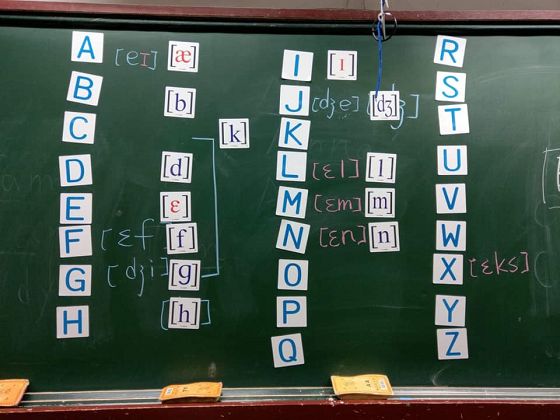 A [eɪ] [æ]
B [b]
C [k]
D [d]
E [ɛ]
F [ɛf] [f]
G [dʒi] [g]
H [h]
I [ɪ]
J [dʒe] [dʒ]
K
L [ɛl] [l]
M [ɛm] [m]
N [ɛn] [n]
O
P
Q
R
S
T
U
V
W
X [ɛks]
Y
Z